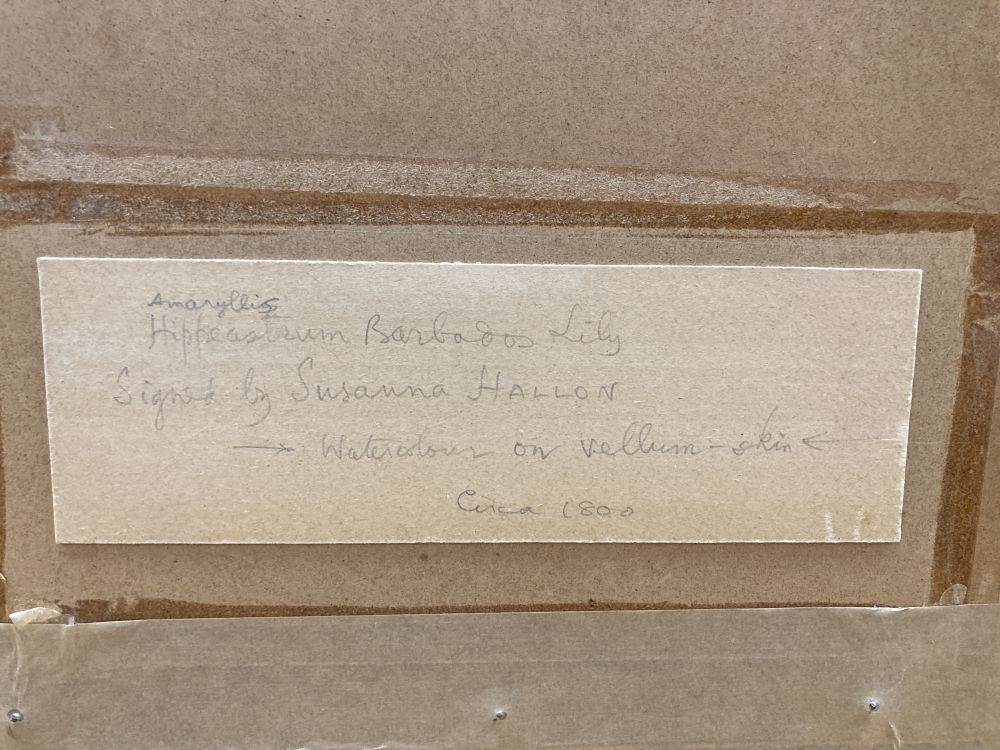 Amaryllis
Hippeastrum Barbados Lily
Signed by Susanna HALLON
→ Watercolour on vellum-skin ←
Circa 1800